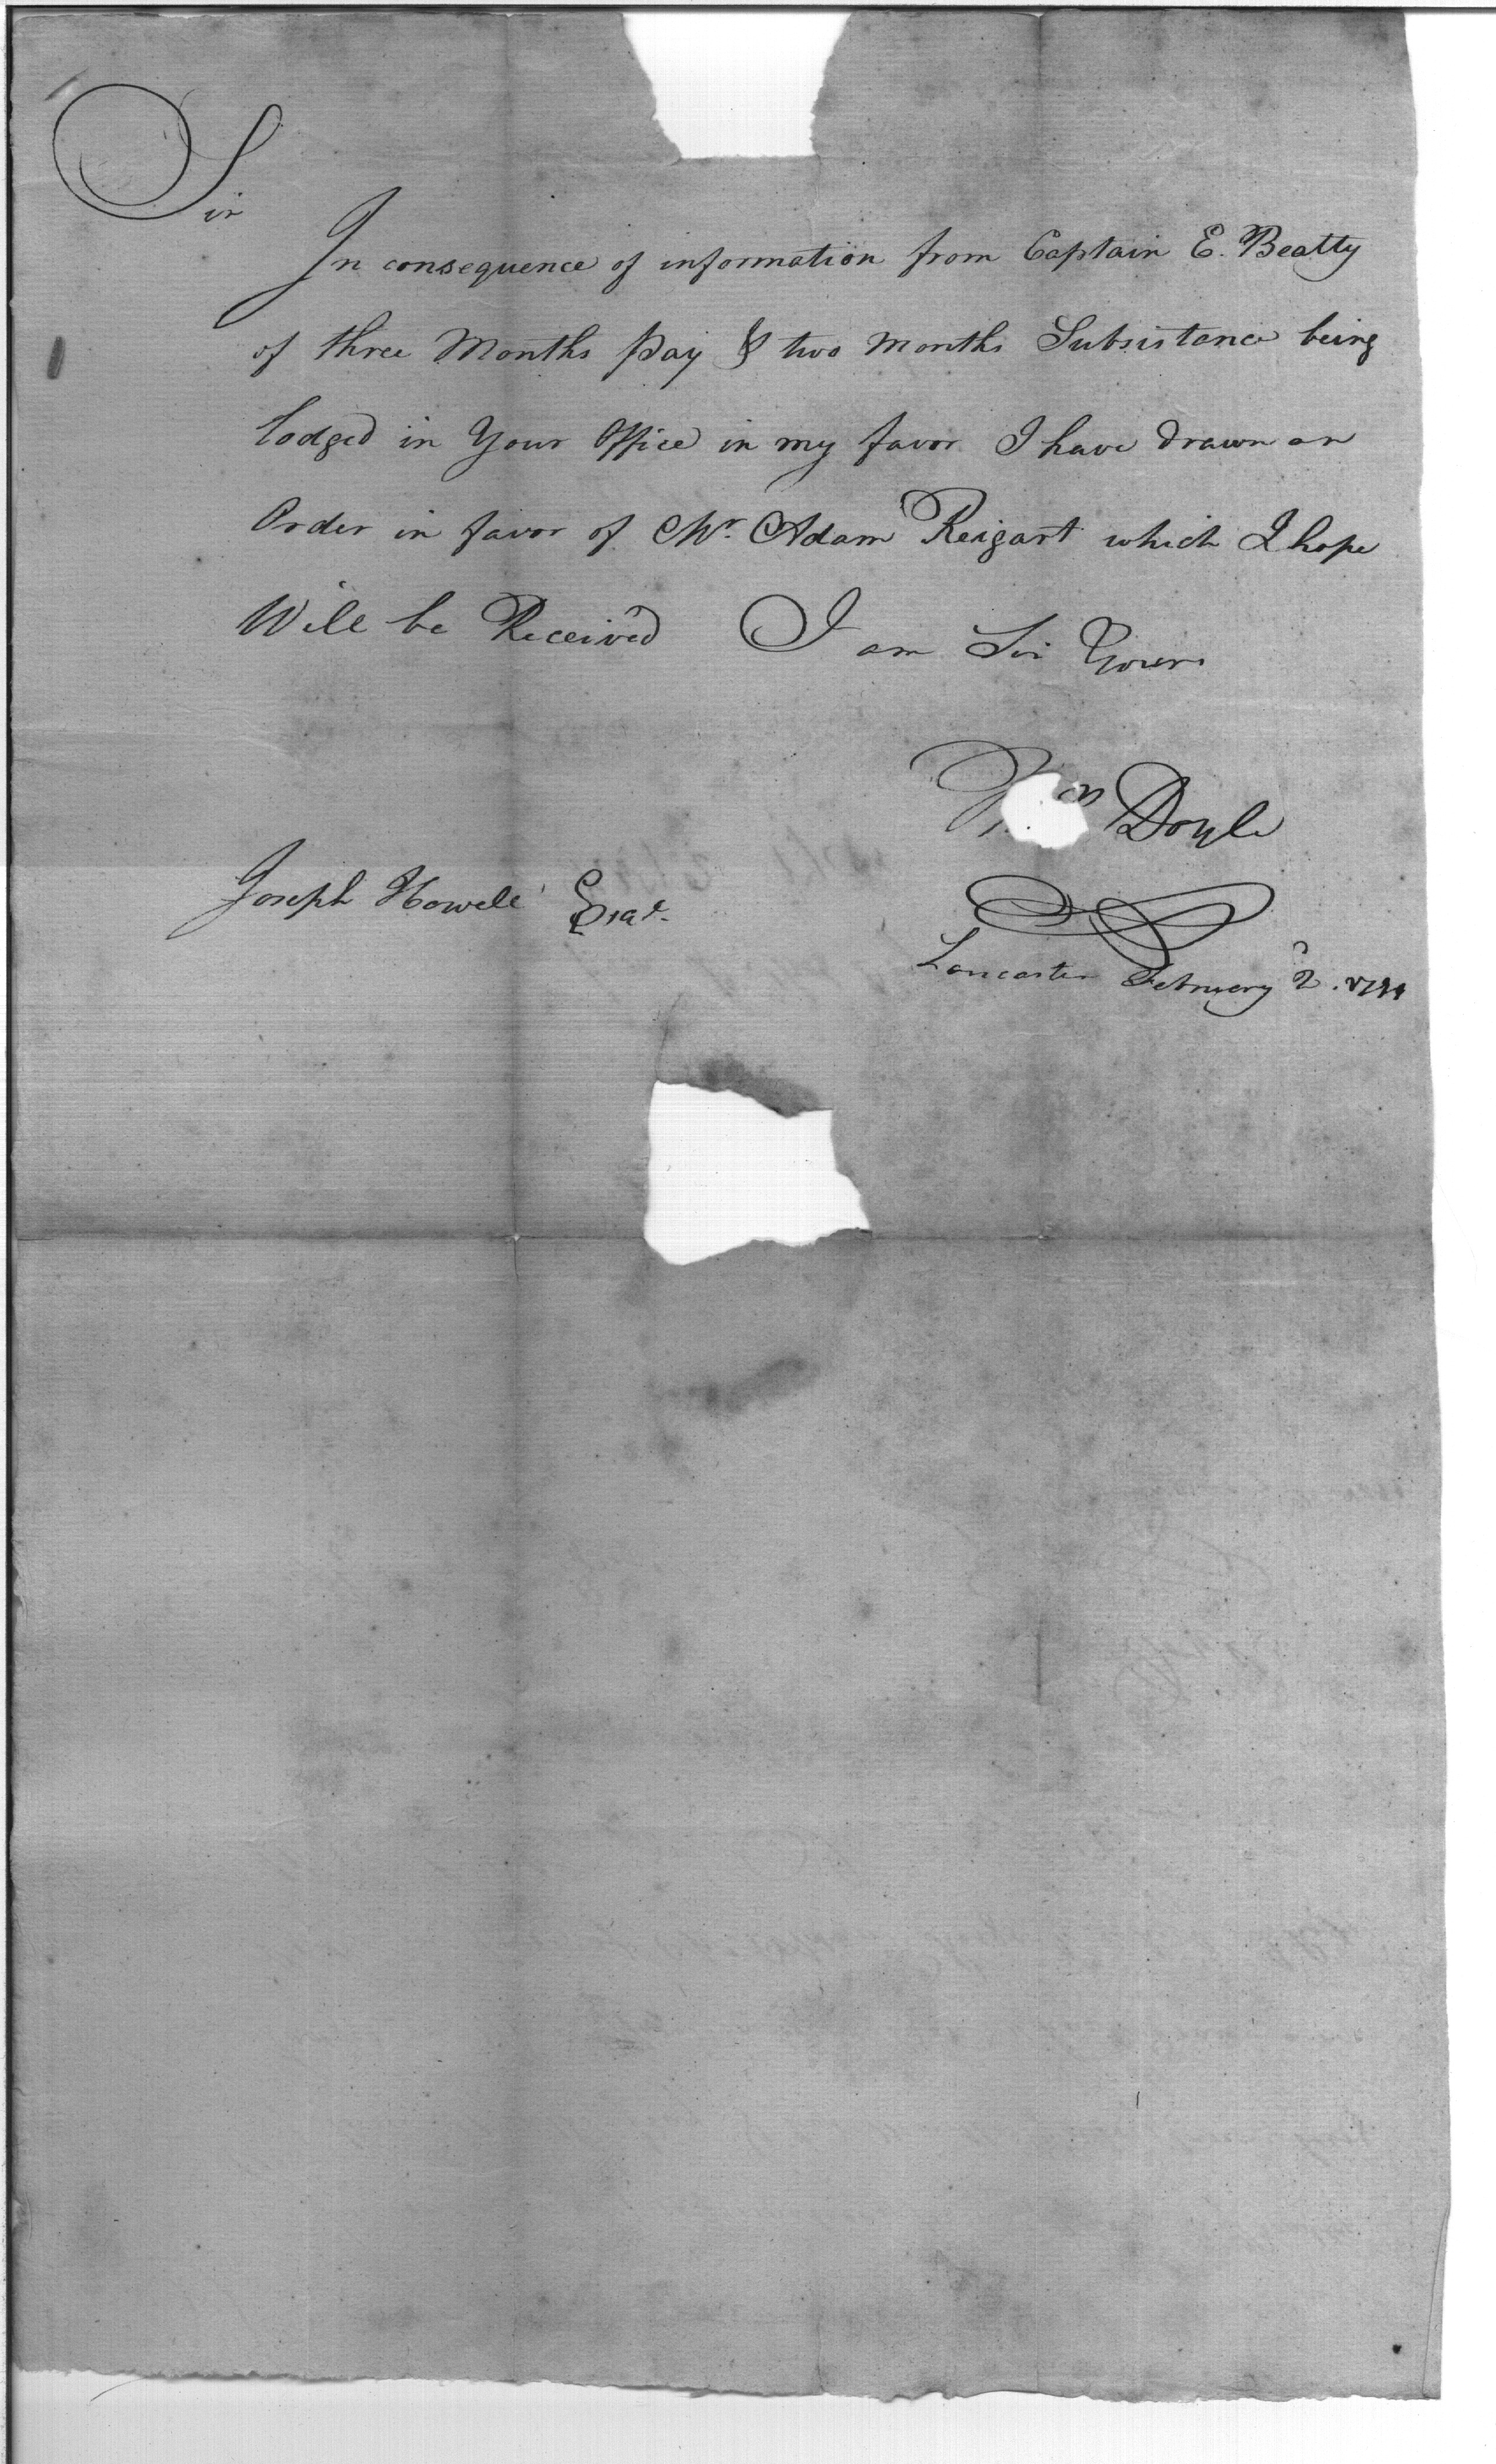 Sir
In consequence of information from Captain E. Beatty
of three Months pay & two Months Subsistance being
lodged in Your Office in my favor I have drawn an
Order in favor of Mr. Adam Reigart which I hope
Will be Received I am Sir Yours
Wm Doyle
Joseph Howell Esqr.
Lancaster February 2.